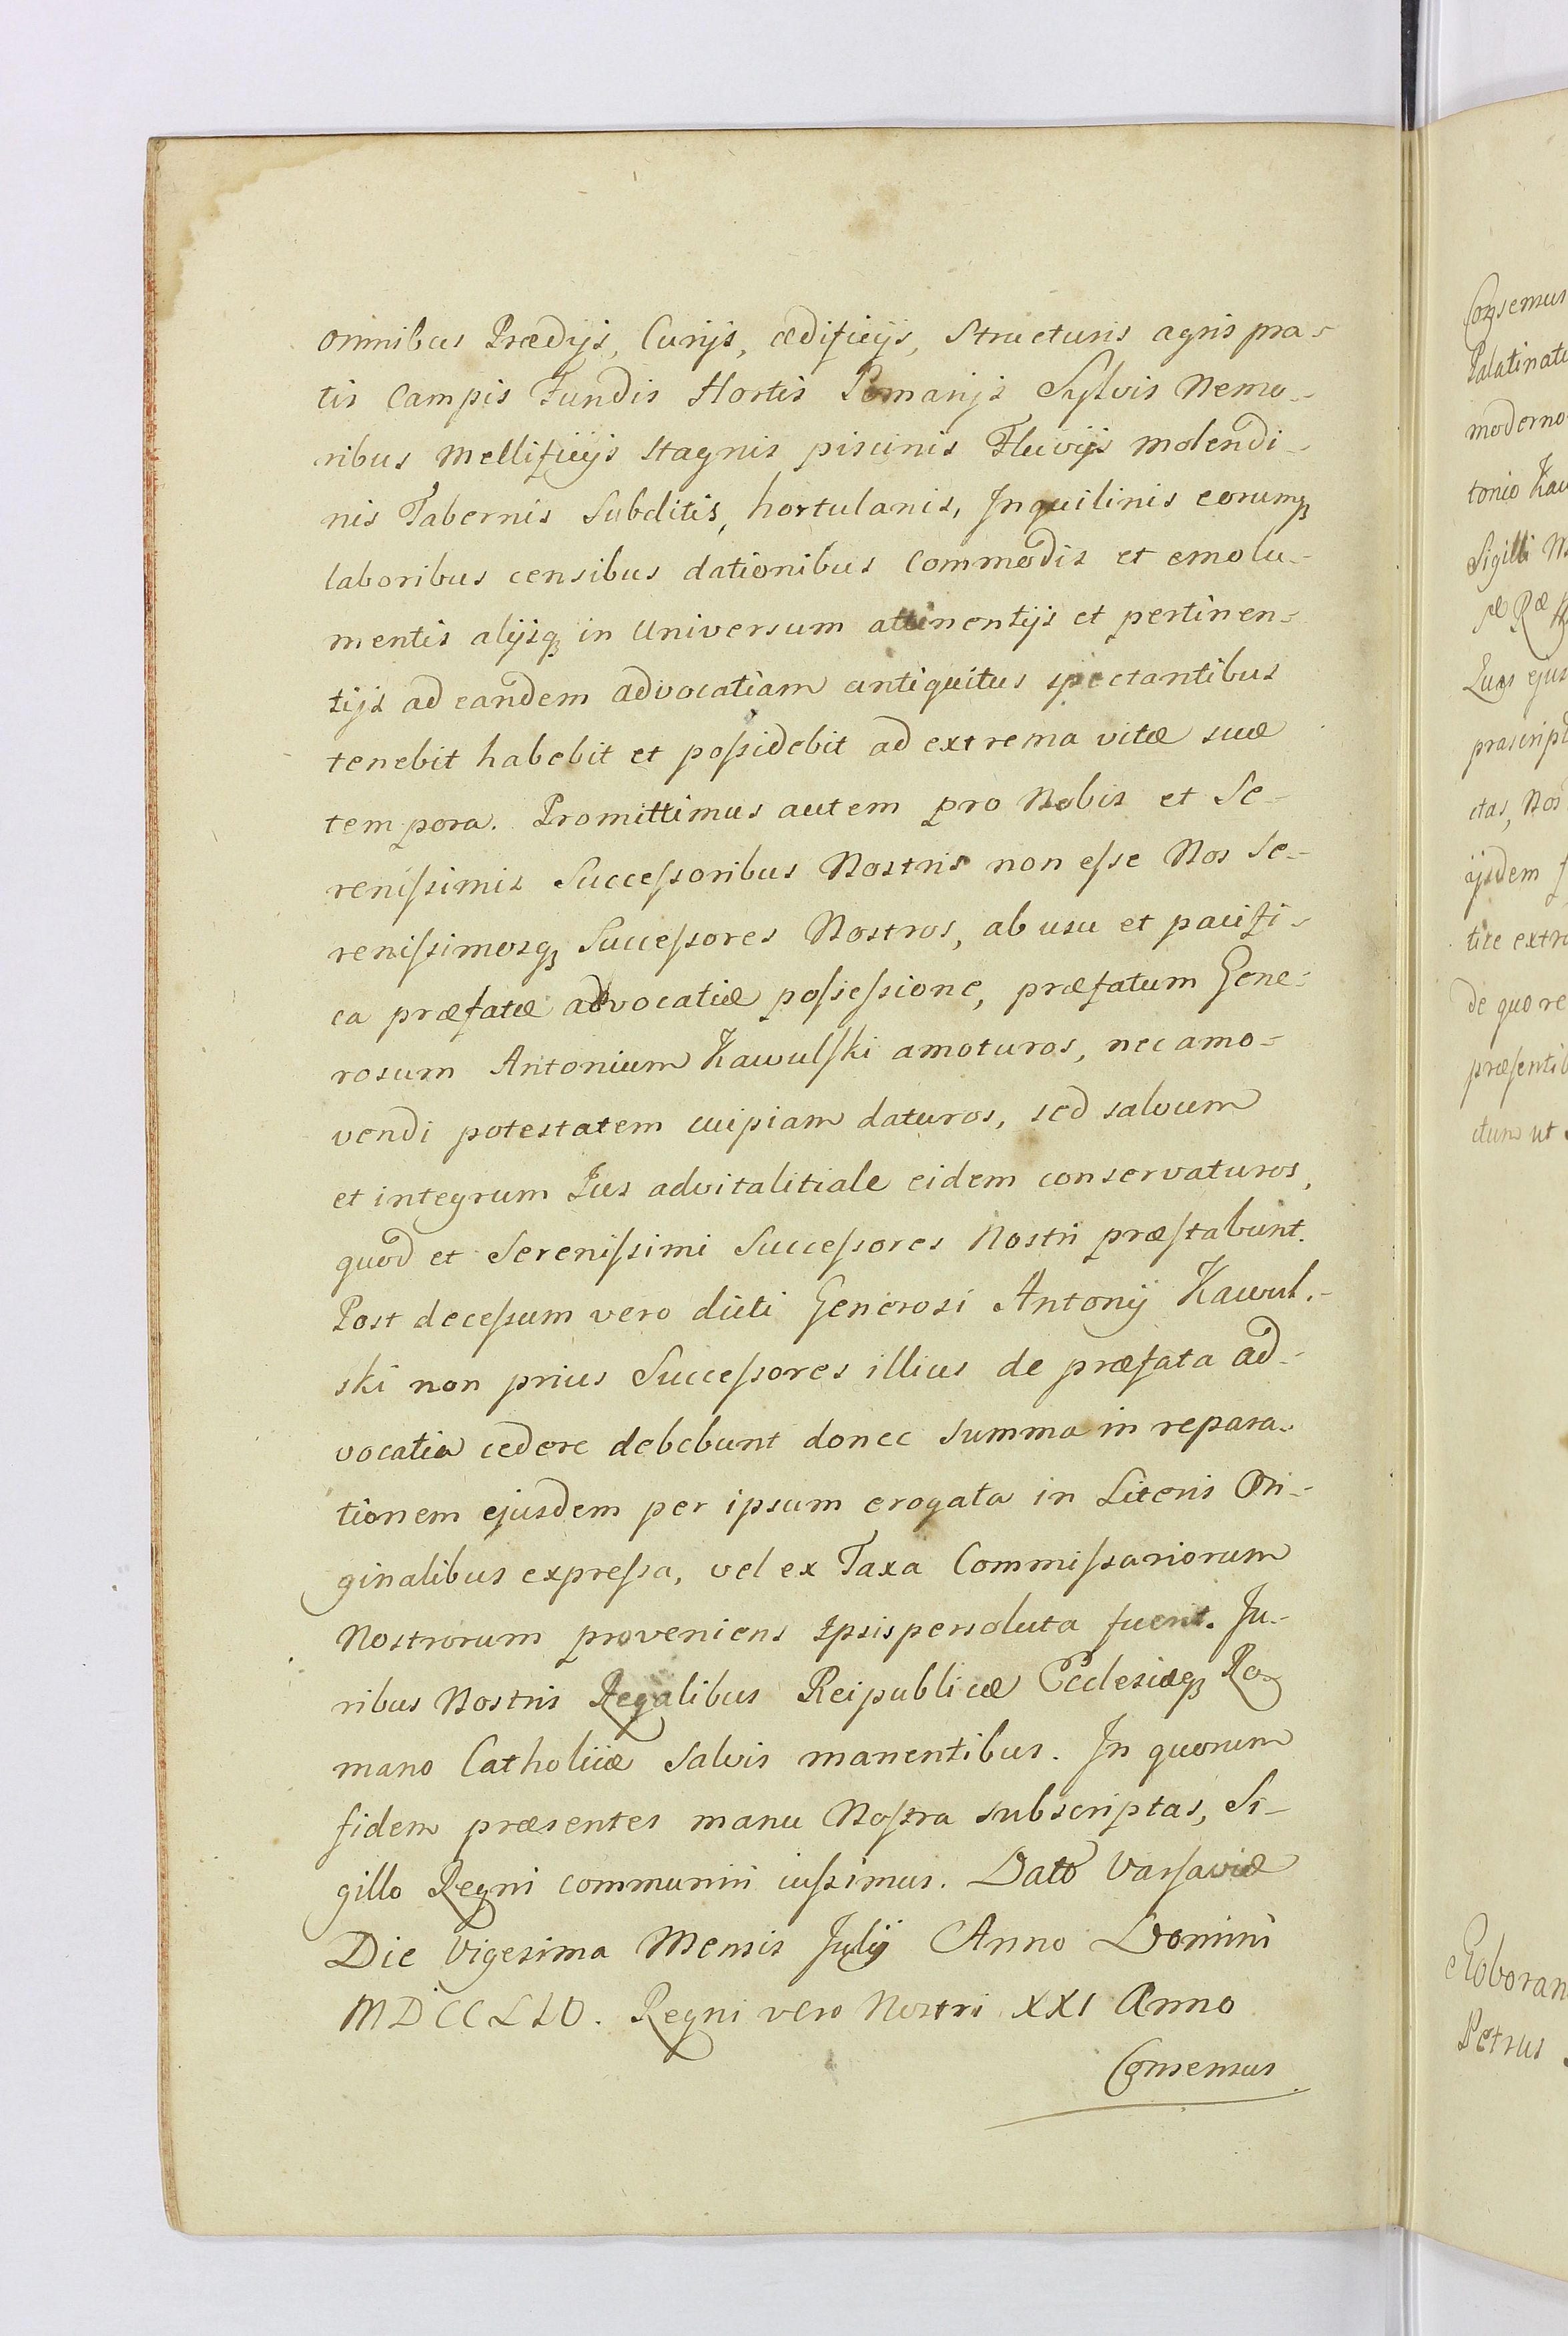 omnibus Prædijs, Curijs, ædificijs, Structuris agris pra-
tis Campis Fundis Hortis Pomarijs Sylvis Nemo-
ribus Mellificijs stagnis piscinis Fluvijs molendi-
nis Tabernis Subditis, hortulanis, Inquilinis eorumq;
laboribus censibus dationibus Commodis et emolu-
mentis alijsq; in Universum attinentijs et pertinen-
tijs ad eandem advocatiam antiquitus spectantibus
tenebit habebit et poſsidebit ad extrema vitæ suæ
tempora. Promittimus autem pro Nobis et Se-
reniſsimis Succeſsoribus Nostris non eſse Nos Se-
reniſsimosq; Succeſsores Nostros, ab usu et pacifi-
ca præfatæ advocatiæ poſseſsione, præfatum Gene-
rosum Antonium Kawulſki amoturos, nec amo-
vendi potestatem cuipiam daturos, sed salvum
et integrum Jus advitalitiale eidem conservaturos,
quod et Sereniſsimi Succeſsores Nostri præſtabunt.
Post deceſsum vero dicti Generosi Antonij Kawul-
ski non prius Succeſsores illius de præfata ad-
vocatia cedere debebunt donec summa in repara-
tionem ejusdem per ipsum erogata in Literis Ori-
ginalibus expreſsa, vel ex Taxa Commiſsariorum
Nostrorum proveniens Ipsis persoluta fuerit. Ju-
ribus Nostris Regalibus Reipublicæ Ecclesiæq; Ro-
mano Catholicæ salvis manentibus. In quorum
fidem præsentes manu Noſtra subscriptas, Si-
gillo Regni communiri iuſsimus. Datt Varſaviæ
Die Vigesima Mensis Julij Anno Domini
MDCCLIV. Regni vero Nostri XXI Anno
Consensus
Consensus
moderno
Sigilli
ijsdem
de quo re
ut
Petrus